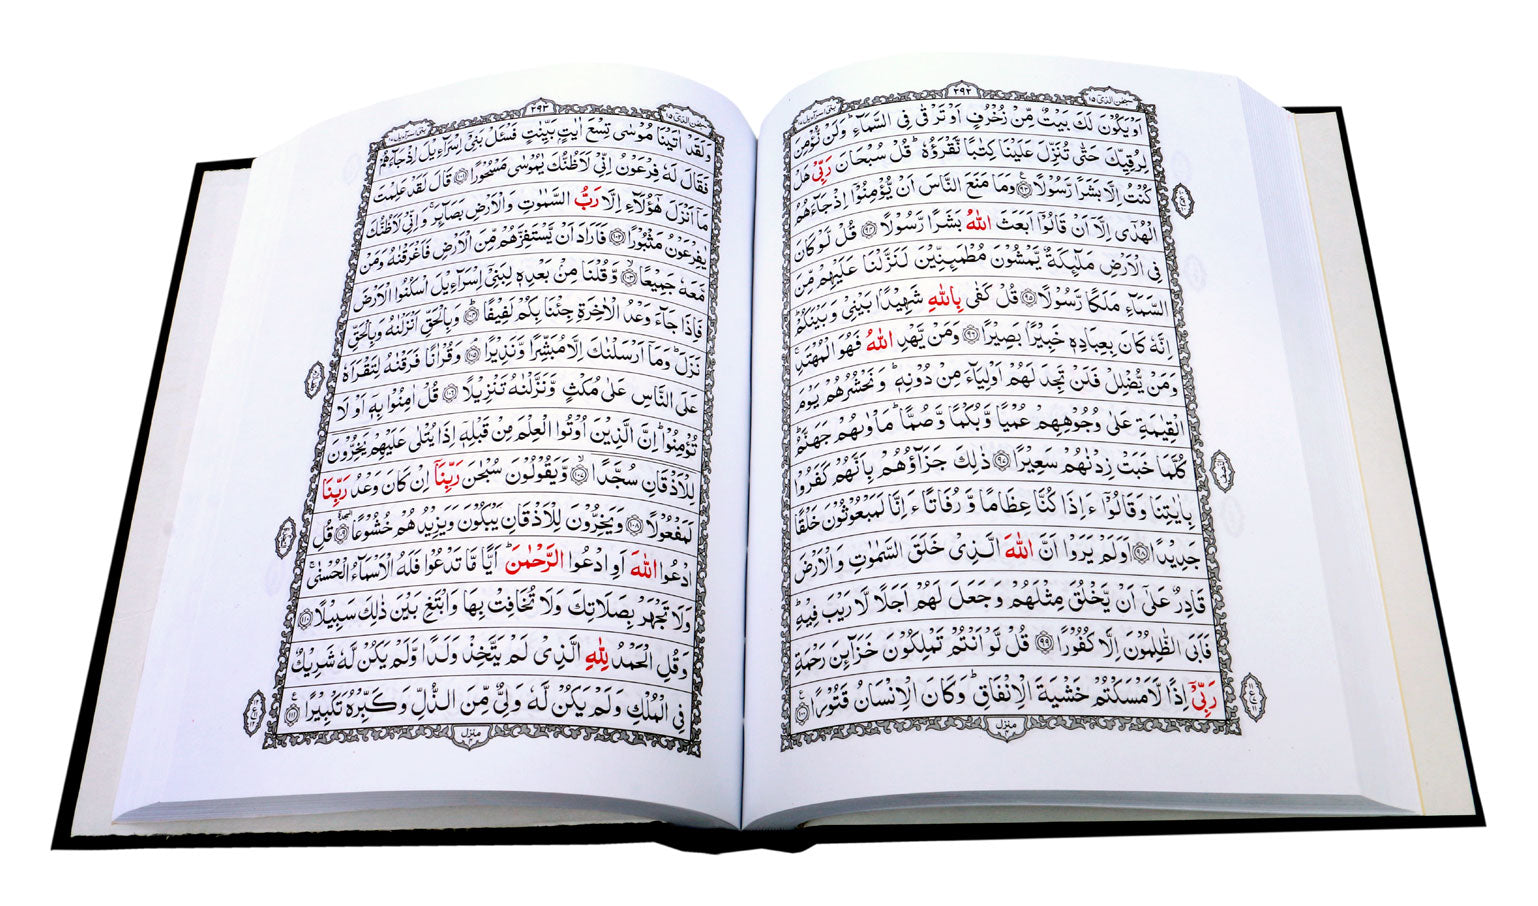 سبحن الذی ۱۵
۲۹۲
بنی اسراءیل ۱۷
اَوْ یَكُوْنَ لَكَ بَیْتٌ مِّنْ زُخْرُفٍ اَوْ تَرْقٰى فِی السَّمَآءِ ؕ وَ لَنْ نُّؤْمِنَ
لِرُقِیِّكَ حَتّٰى تُنَزِّلَ عَلَیْنَا كِتٰبًا نَّقْرَؤُهٗ ؕ قُلْ سُبْحَانَ رَبِّیْ هَلْ
كُنْتُ اِلَّا بَشَرًا رَّسُوْلًا ۹۳ وَ مَا مَنَعَ النَّاسَ اَنْ یُّؤْمِنُوْۤا اِذْ جَآءَهُمُ
الْهُدٰۤى اِلَّاۤ اَنْ قَالُوْۤا اَبَعَثَ اللّٰهُ بَشَرًا رَّسُوْلًا ۹۴ قُلْ لَّوْ كَانَ
فِی الْاَرْضِ مَلٰٓىِٕكَةٌ یَّمْشُوْنَ مُطْمَىِٕنِّیْنَ لَنَزَّلْنَا عَلَیْهِمْ مِّنَ
السَّمَآءِ مَلَكًا رَّسُوْلًا ۹۵ قُلْ كَفٰى بِاللّٰهِ شَهِیْدًۢا بَیْنِیْ وَ بَیْنَكُمْ ؕ
اِنَّهٗ كَانَ بِعِبَادِهٖ خَبِیْرًۢا بَصِیْرًا ۹۶ وَ مَنْ یَّهْدِ اللّٰهُ فَهُوَ الْمُهْتَدِ ۚ
وَ مَنْ یُّضْلِلْ فَلَنْ تَجِدَ لَهُمْ اَوْلِیَآءَ مِنْ دُوْنِهٖ ؕ وَ نَحْشُرُهُمْ یَوْمَ
الْقِیٰمَةِ عَلٰى وُجُوْهِهِمْ عُمْیًا وَّ بُكْمًا وَّ صُمًّا ؕ مَاْوٰىهُمْ جَهَنَّمُ ؕ
كُلَّمَا خَبَتْ زِدْنٰهُمْ سَعِیْرًا ۹۷ ذٰلِكَ جَزَآؤُهُمْ بِاَنَّهُمْ كَفَرُوْا
بِاٰیٰتِنَا وَ قَالُوْۤا ءَاِذَا كُنَّا عِظَامًا وَّ رُفَاتًا ءَاِنَّا لَمَبْعُوْثُوْنَ خَلْقًا
جَدِیْدًا ۹۸ اَوَ لَمْ یَرَوْا اَنَّ اللّٰهَ الَّذِیْ خَلَقَ السَّمٰوٰتِ وَ الْاَرْضَ
قَادِرٌ عَلٰۤى اَنْ یَّخْلُقَ مِثْلَهُمْ وَ جَعَلَ لَهُمْ اَجَلًا لَّا رَیْبَ فِیْهِ ؕ
فَاَبَى الظّٰلِمُوْنَ اِلَّا كُفُوْرًا ۹۹ قُلْ لَّوْ اَنْتُمْ تَمْلِكُوْنَ خَزَآىِٕنَ رَحْمَةِ
رَبِّیْۤ اِذًا لَّاَمْسَكْتُمْ خَشْیَةَ الْاِنْفَاقِ ؕ وَ كَانَ الْاِنْسَانُ قَتُوْرًا ۱۰۰
منزل ۴
سبحن الذی ۱۵
۲۹۳
بنی اسراءیل ۱۷
وَ لَقَدْ اٰتَیْنَا مُوْسٰى تِسْعَ اٰیٰتٍۭ بَیِّنٰتٍ فَسْـَٔلْ بَنِیْۤ اِسْرَآءِیْلَ اِذْ جَآءَهُمْ
فَقَالَ لَهٗ فِرْعَوْنُ اِنِّیْ لَاَظُنُّكَ یٰمُوْسٰى مَسْحُوْرًا ۱۰۱ قَالَ لَقَدْ عَلِمْتَ
مَاۤ اَنْزَلَ هٰۤؤُلَآءِ اِلَّا رَبُّ السَّمٰوٰتِ وَ الْاَرْضِ بَصَآىِٕرَ ۚ وَ اِنِّیْ لَاَظُنُّكَ
یٰفِرْعَوْنُ مَثْبُوْرًا ۱۰۲ فَاَرَادَ اَنْ یَّسْتَفِزَّهُمْ مِّنَ الْاَرْضِ فَاَغْرَقْنٰهُ وَ مَنْ
مَّعَهٗ جَمِیْعًا ۱۰۳ وَّ قُلْنَا مِنْۢ بَعْدِهٖ لِبَنِیْۤ اِسْرَآءِیْلَ اسْكُنُوا الْاَرْضَ
فَاِذَا جَآءَ وَعْدُ الْاٰخِرَةِ جِئْنَا بِكُمْ لَفِیْفًا ۱۰۴ وَ بِالْحَقِّ اَنْزَلْنٰهُ وَ بِالْحَقِّ
نَزَلَ ؕ وَ مَاۤ اَرْسَلْنٰكَ اِلَّا مُبَشِّرًا وَّ نَذِیْرًا ۱۰۵ وَ قُرْاٰنًا فَرَقْنٰهُ لِتَقْرَاَهٗ
عَلَى النَّاسِ عَلٰى مُكْثٍ وَّ نَزَّلْنٰهُ تَنْزِیْلًا ۱۰۶ قُلْ اٰمِنُوْا بِهٖۤ اَوْ لَا
تُؤْمِنُوْا ؕ اِنَّ الَّذِیْنَ اُوْتُوا الْعِلْمَ مِنْ قَبْلِهٖۤ اِذَا یُتْلٰى عَلَیْهِمْ یَخِرُّوْنَ
لِلْاَذْقَانِ سُجَّدًا ۱۰۷ وَّ یَقُوْلُوْنَ سُبْحٰنَ رَبِّنَاۤ اِنْ كَانَ وَعْدُ رَبِّنَا
لَمَفْعُوْلًا ۱۰۸ وَ یَخِرُّوْنَ لِلْاَذْقَانِ یَبْكُوْنَ وَ یَزِیْدُهُمْ خُشُوْعًا ۱۰۹ قُلِ
ادْعُوا اللّٰهَ اَوِ ادْعُوا الرَّحْمٰنَ ؕ اَیًّا مَّا تَدْعُوْا فَلَهُ الْاَسْمَآءُ الْحُسْنٰى ۚ
وَ لَا تَجْهَرْ بِصَلَاتِكَ وَ لَا تُخَافِتْ بِهَا وَ ابْتَغِ بَیْنَ ذٰلِكَ سَبِیْلًا ۱۱۰
وَ قُلِ الْحَمْدُ لِلّٰهِ الَّذِیْ لَمْ یَتَّخِذْ وَلَدًا وَّ لَمْ یَكُنْ لَّهٗ شَرِیْكٌ
فِی الْمُلْكِ وَ لَمْ یَكُنْ لَّهٗ وَلِیٌّ مِّنَ الذُّلِّ وَ كَبِّرْهُ تَكْبِیْرًا ۱۱۱
منزل ۴